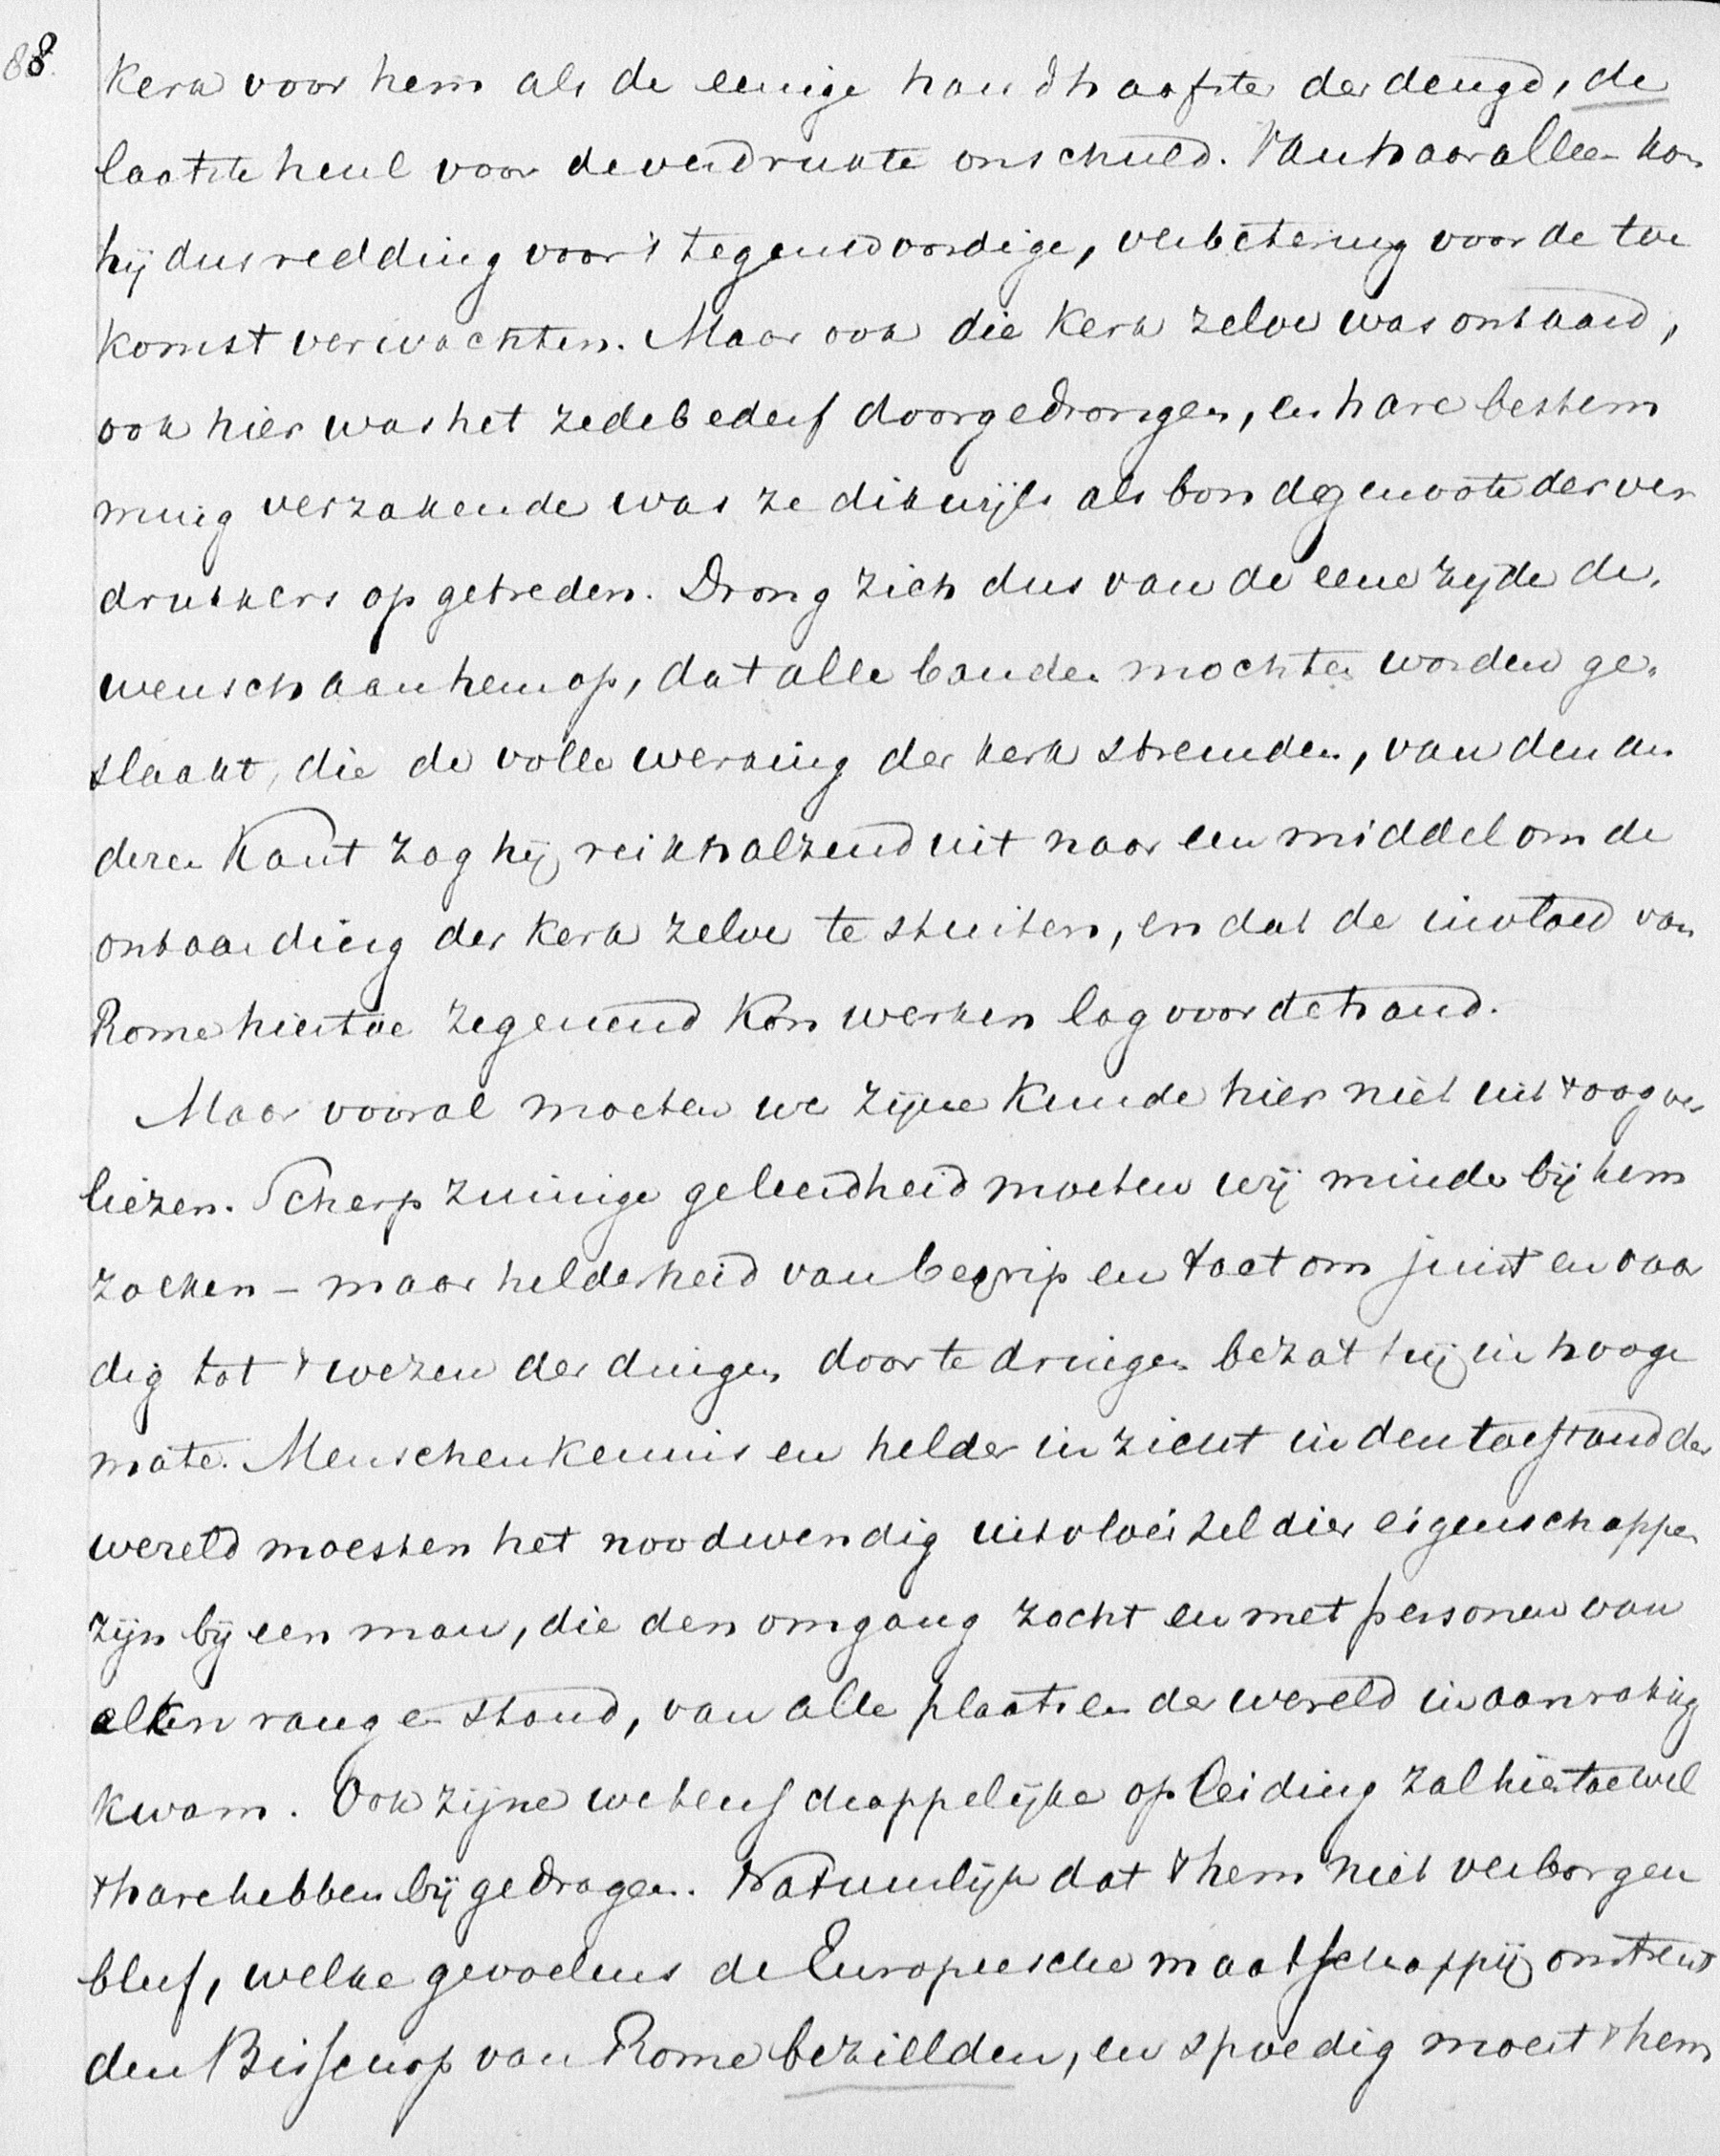 88.
kerk voor hem als de eenige handhaafster der deugd, de
laatste heul voor de verdrukte onschuld. Van haar alleen kon
hij dus redding voor 't tegenwoordige, verbetering voor de toe
komst verwachten. Maar ook die kerk zelve was ontaard,
ook hier was het zedebederf doorgedrongen, en hare bestem
ming verzakende was ze dikwijls als bondgenoote der ver
drukkers opgetreden. Drong zich dus van de eene zijde de
wensch aan hem op, dat alle banden mochten worden ge-
slaakt, die de volle werking der kerk stremden, van den an
deren kant zag hij reikhalzend uit naar een middel om de
ontaarding der kerk zelve te stuiten, en dat de invloed van
Rome hiertoe zegenend kon werken lag voor de hand.
Maar vooral moeten we zijne kunde hier niet uit 't oog ver
liezen. Scherpzinnige geleerdheid moeten wij minder bij hem
zoeken - maar helderheid van begrip en tact om juist en vaar
dig tot 't wezen der dingen door te dringen bezat hij in hooge
mate. Menschenkennis en helder inzicht in den toestand der
wereld moesten het noodwendig uitvloeisel dier eigenschappen
zijn bij een man, die den omgang zocht en met personen van
elken rang en stand, van alle plaatsen der wereld in aanraking
kwam. Ook zijne wetenschappelijke opleiding zal hiertoe wel
't hare hebben bijgedragen. Natuurlijk dat 't hem niet verborgen
bleef, welke gevoelens de Europeesche maatschappij omtrent
den Bisschop van Rome bezielden, en spoedig moest 't hem